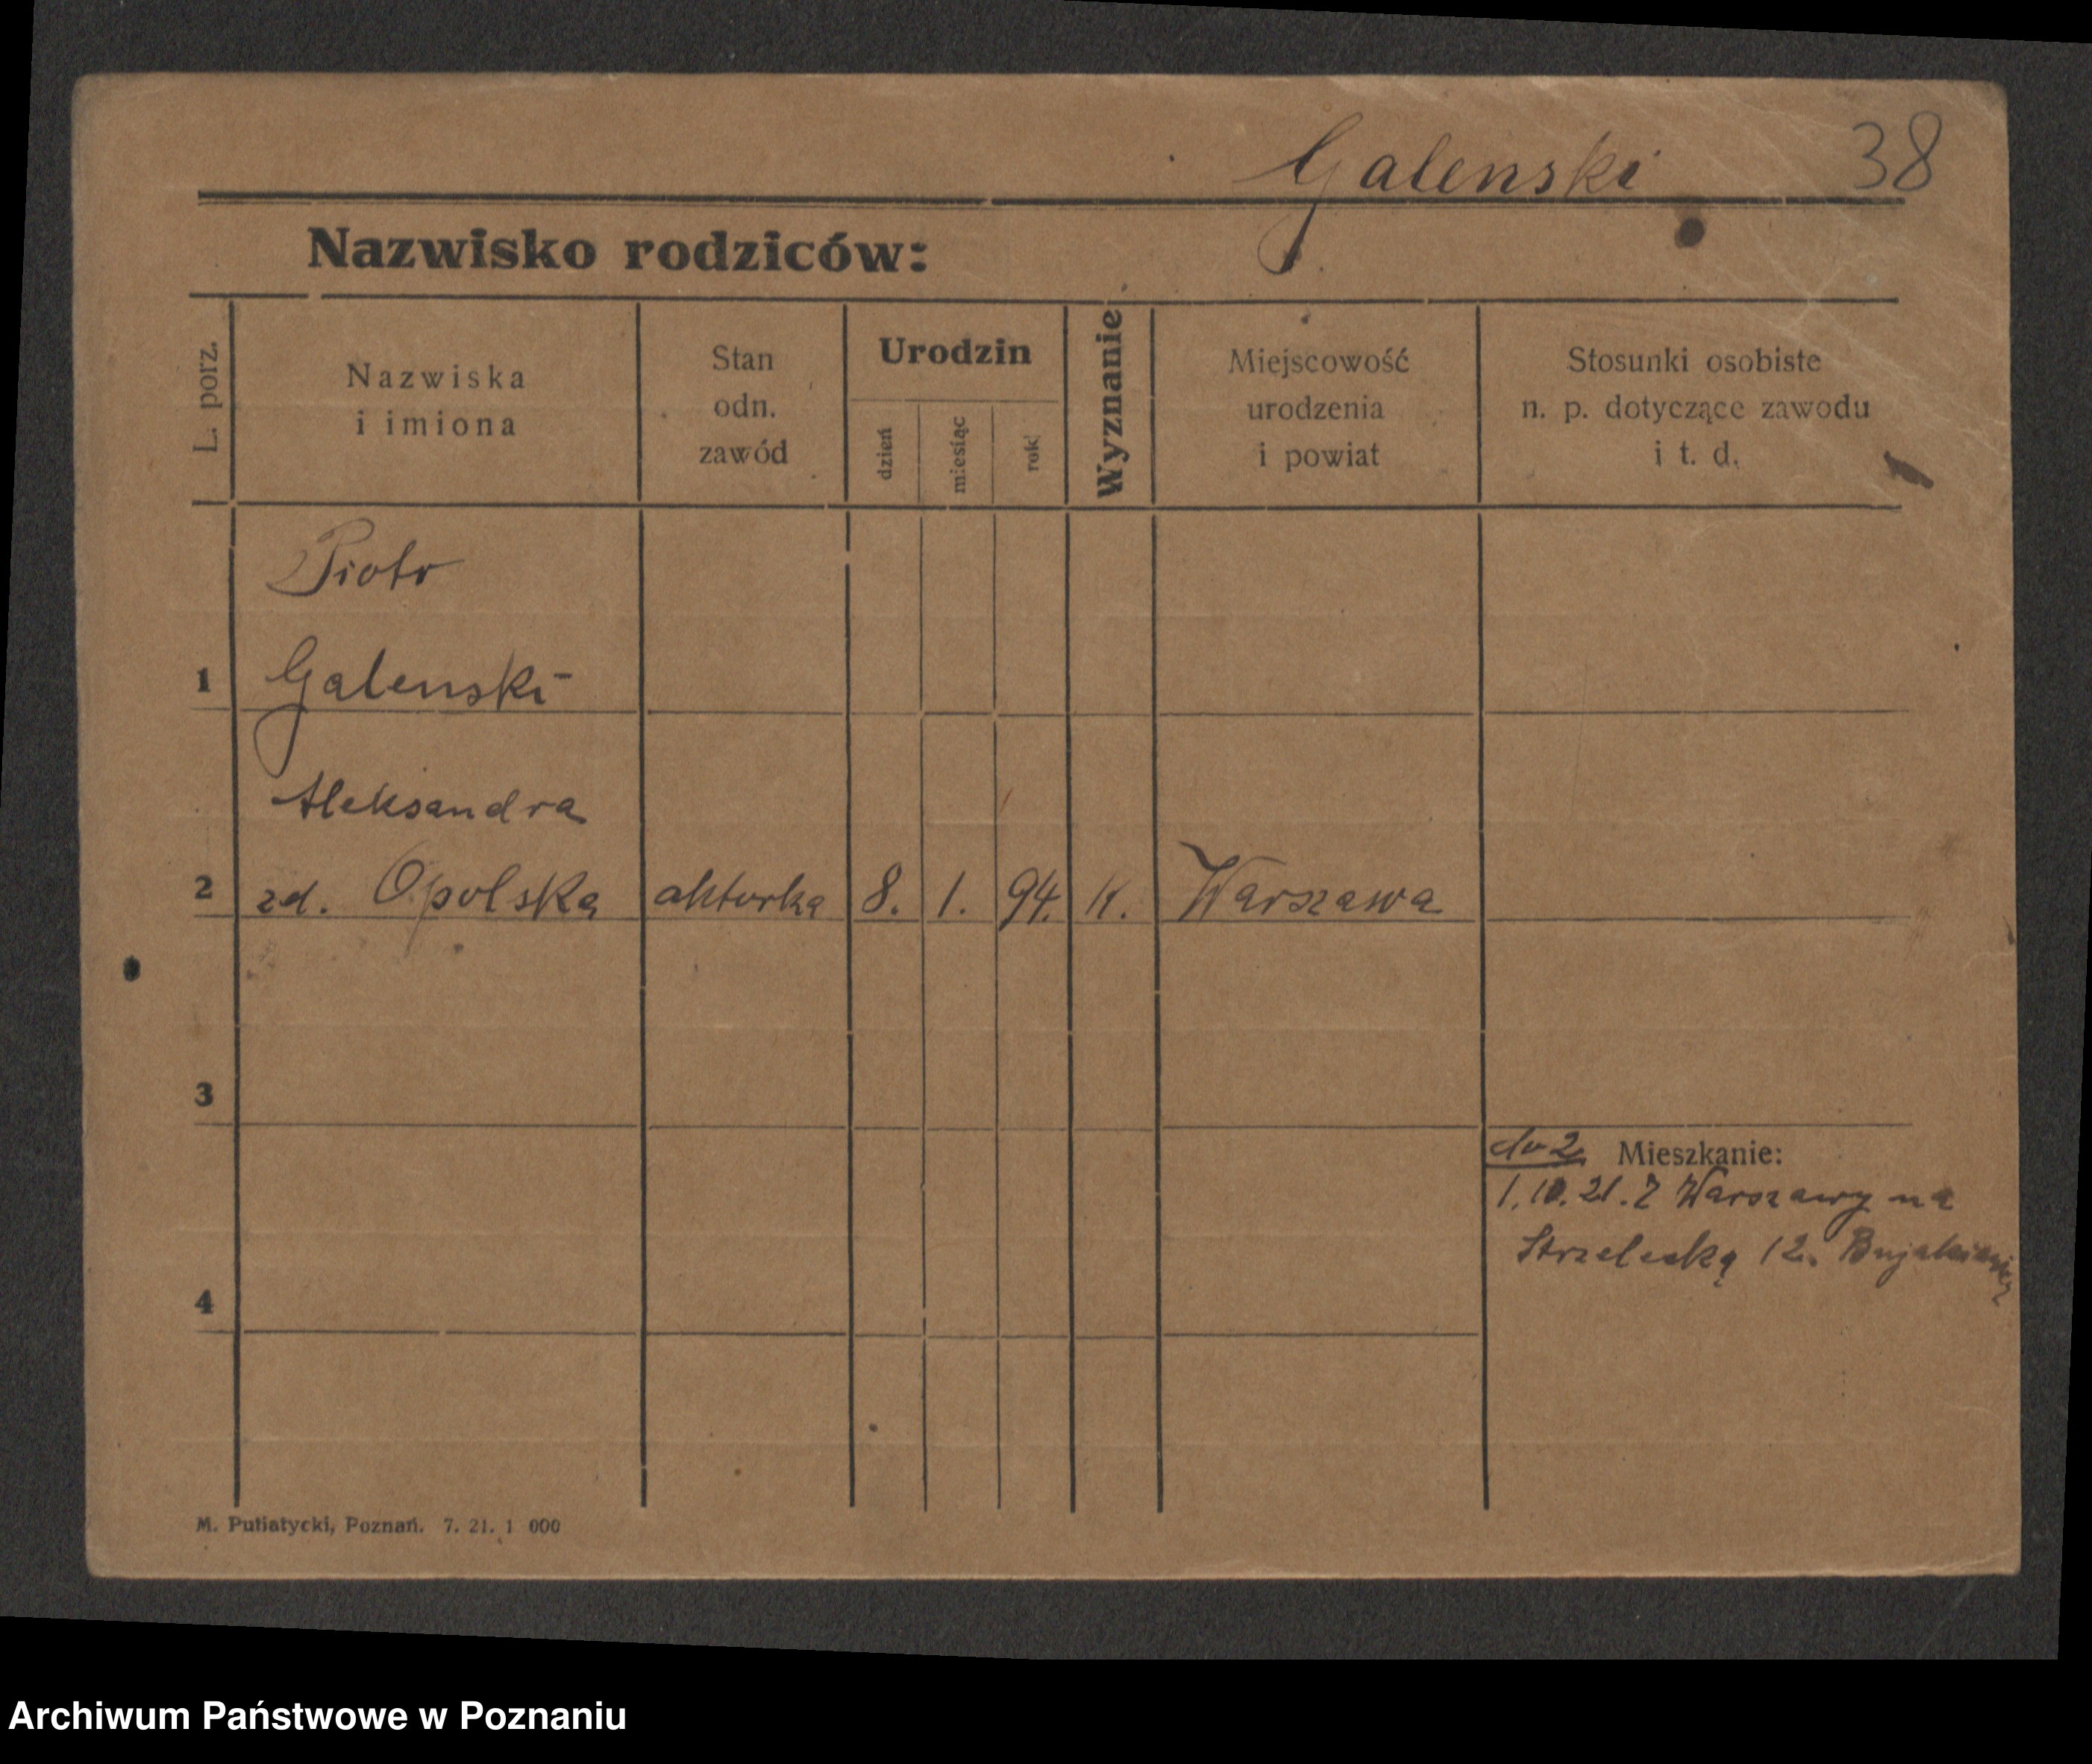 Galenski 38
Nazwisko rodziców:
L. porz.
Nazwiska
i imiona
Stan
odn.
zawód
Urodzin
dzień
miesiąc
rok
Wyznanie
Miejscowość
urodzenia
i powiat
Stosunki osobiste
n. p. dotyczące zawodu
i t. d.
Piotr
1 Galenski
Aleksandra
2 zd. Opolska aktorka 8. 1. 94. K. Warszawa
3
do 2 Mieszkanie:
1. 10. 21. Z Warszawy na
Strzelecką 12.
4
M. Putiatycki, Poznań. 7. 21. 1 000
Archiwum Państwowe w Poznaniu